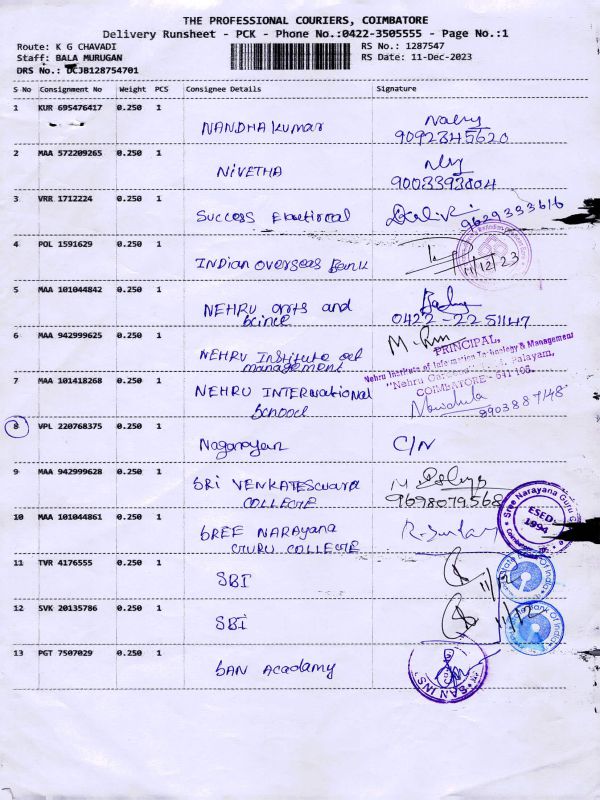 THE PROFESSIONAL COURIERS, COIMBATORE
Delivery Runsheet - PCK - Phone No.:0422-3505555 - Page No.:1
Route: K G CHAVADI RS No.: 1287547
Staff: BALA MURUGAN RS Date: 11-Dec-2023
DRS No.: DCJB128754701
S No Consignment No Weight PCS Consignee Details Signature
1 KUR 695476417 0.250 1 NANDHA kumar
9092345620
2 MAA 572209265 0.250 1 NIVETHA
9003393804
3 VRR 1712224 0.250 1 Success Electional 9629333616
4 POL 1591629 0.250 1 INDian overseas Bank 11/12/23
5 MAA 101044842 0.250 1 NEHRU arts and
Science 0422-2251147
6 MAA 942999625 0.250 1 NEHRU Institute of
management
PRINCIPAL,
Nehru Institute of Information Technology & Management
"Nehru Palayam,
COIMBATORE - 641 105.
7 MAA 101418268 0.250 1 NEHRU INTERNational
School 8903887148
8 VPL 220768375 0.250 1 Naganayan C/N
9 MAA 942999628 0.250 1 SRI VENKATESwara
COLLEGE 9698079568
10 MAA 101044861 0.250 1 SREE NARAyana
GURU COLLEGE
Sree Narayana Guru
ESED:
1994
11 TVR 4176555 0.250 1 SBI 11/12
State Bank Of India
12 SVK 20135786 0.250 1 SBI 11/12
Bank Of India
13 PGT 7507029 0.250 1 SAN Acadamy
SAN INS